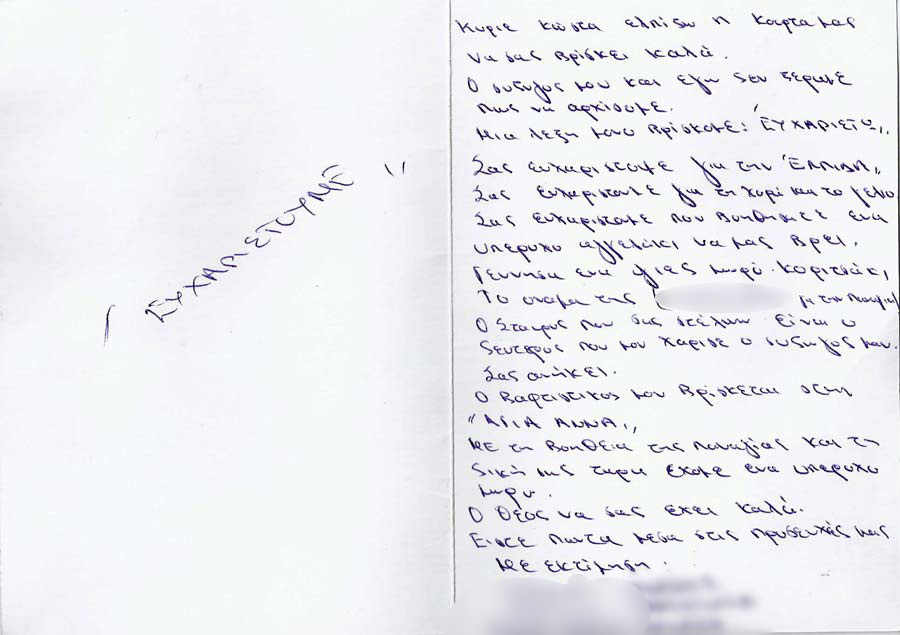 " ΕΥΧΑΡΙΣΤΟΥΜΕ "
Κυριε Κώστα ελπίζω η καρτα μας
να σας βρίσκει καλά.
Ο συζυγος μου και εγω δεν ξερομε
πως να αρχισομε.
Μια λεξη μονο βρισκομε: "ΕΥΧΑΡΙΣΤΩ,,
Σας ευχαριστουμε για την "ΕΛΠΙΔΑ,,
Σας ευχαριστουμε για τη χαρά και το γελιο
Σας ευχαριστουμε που βοηθησατε ενα
υπεροχο αγγελάκι να μας βρει.
Γεννησα ενα γιες μωρό κοριτσάκι,
Το ονομα της για την Παναγία
Ο Σταυρος που σας στέλνω είναι ο
δευτερος που μου χαρισε ο συζυγος μου.
Σας ανήκει.
Ο Βαφτιστικος μου βρίσκεται στην
"ΑΓΙΑ ΑΝΝΑ,,
Με τη βοηθεια της Παναγίας και τη
δική σας τωρα εχομε ενα υπεροχο
μωρο.
Ο Θεος να σας εχει καλά.
Ειστε παντα μεσα στις προσευχές μας
Με εκτίμηση.